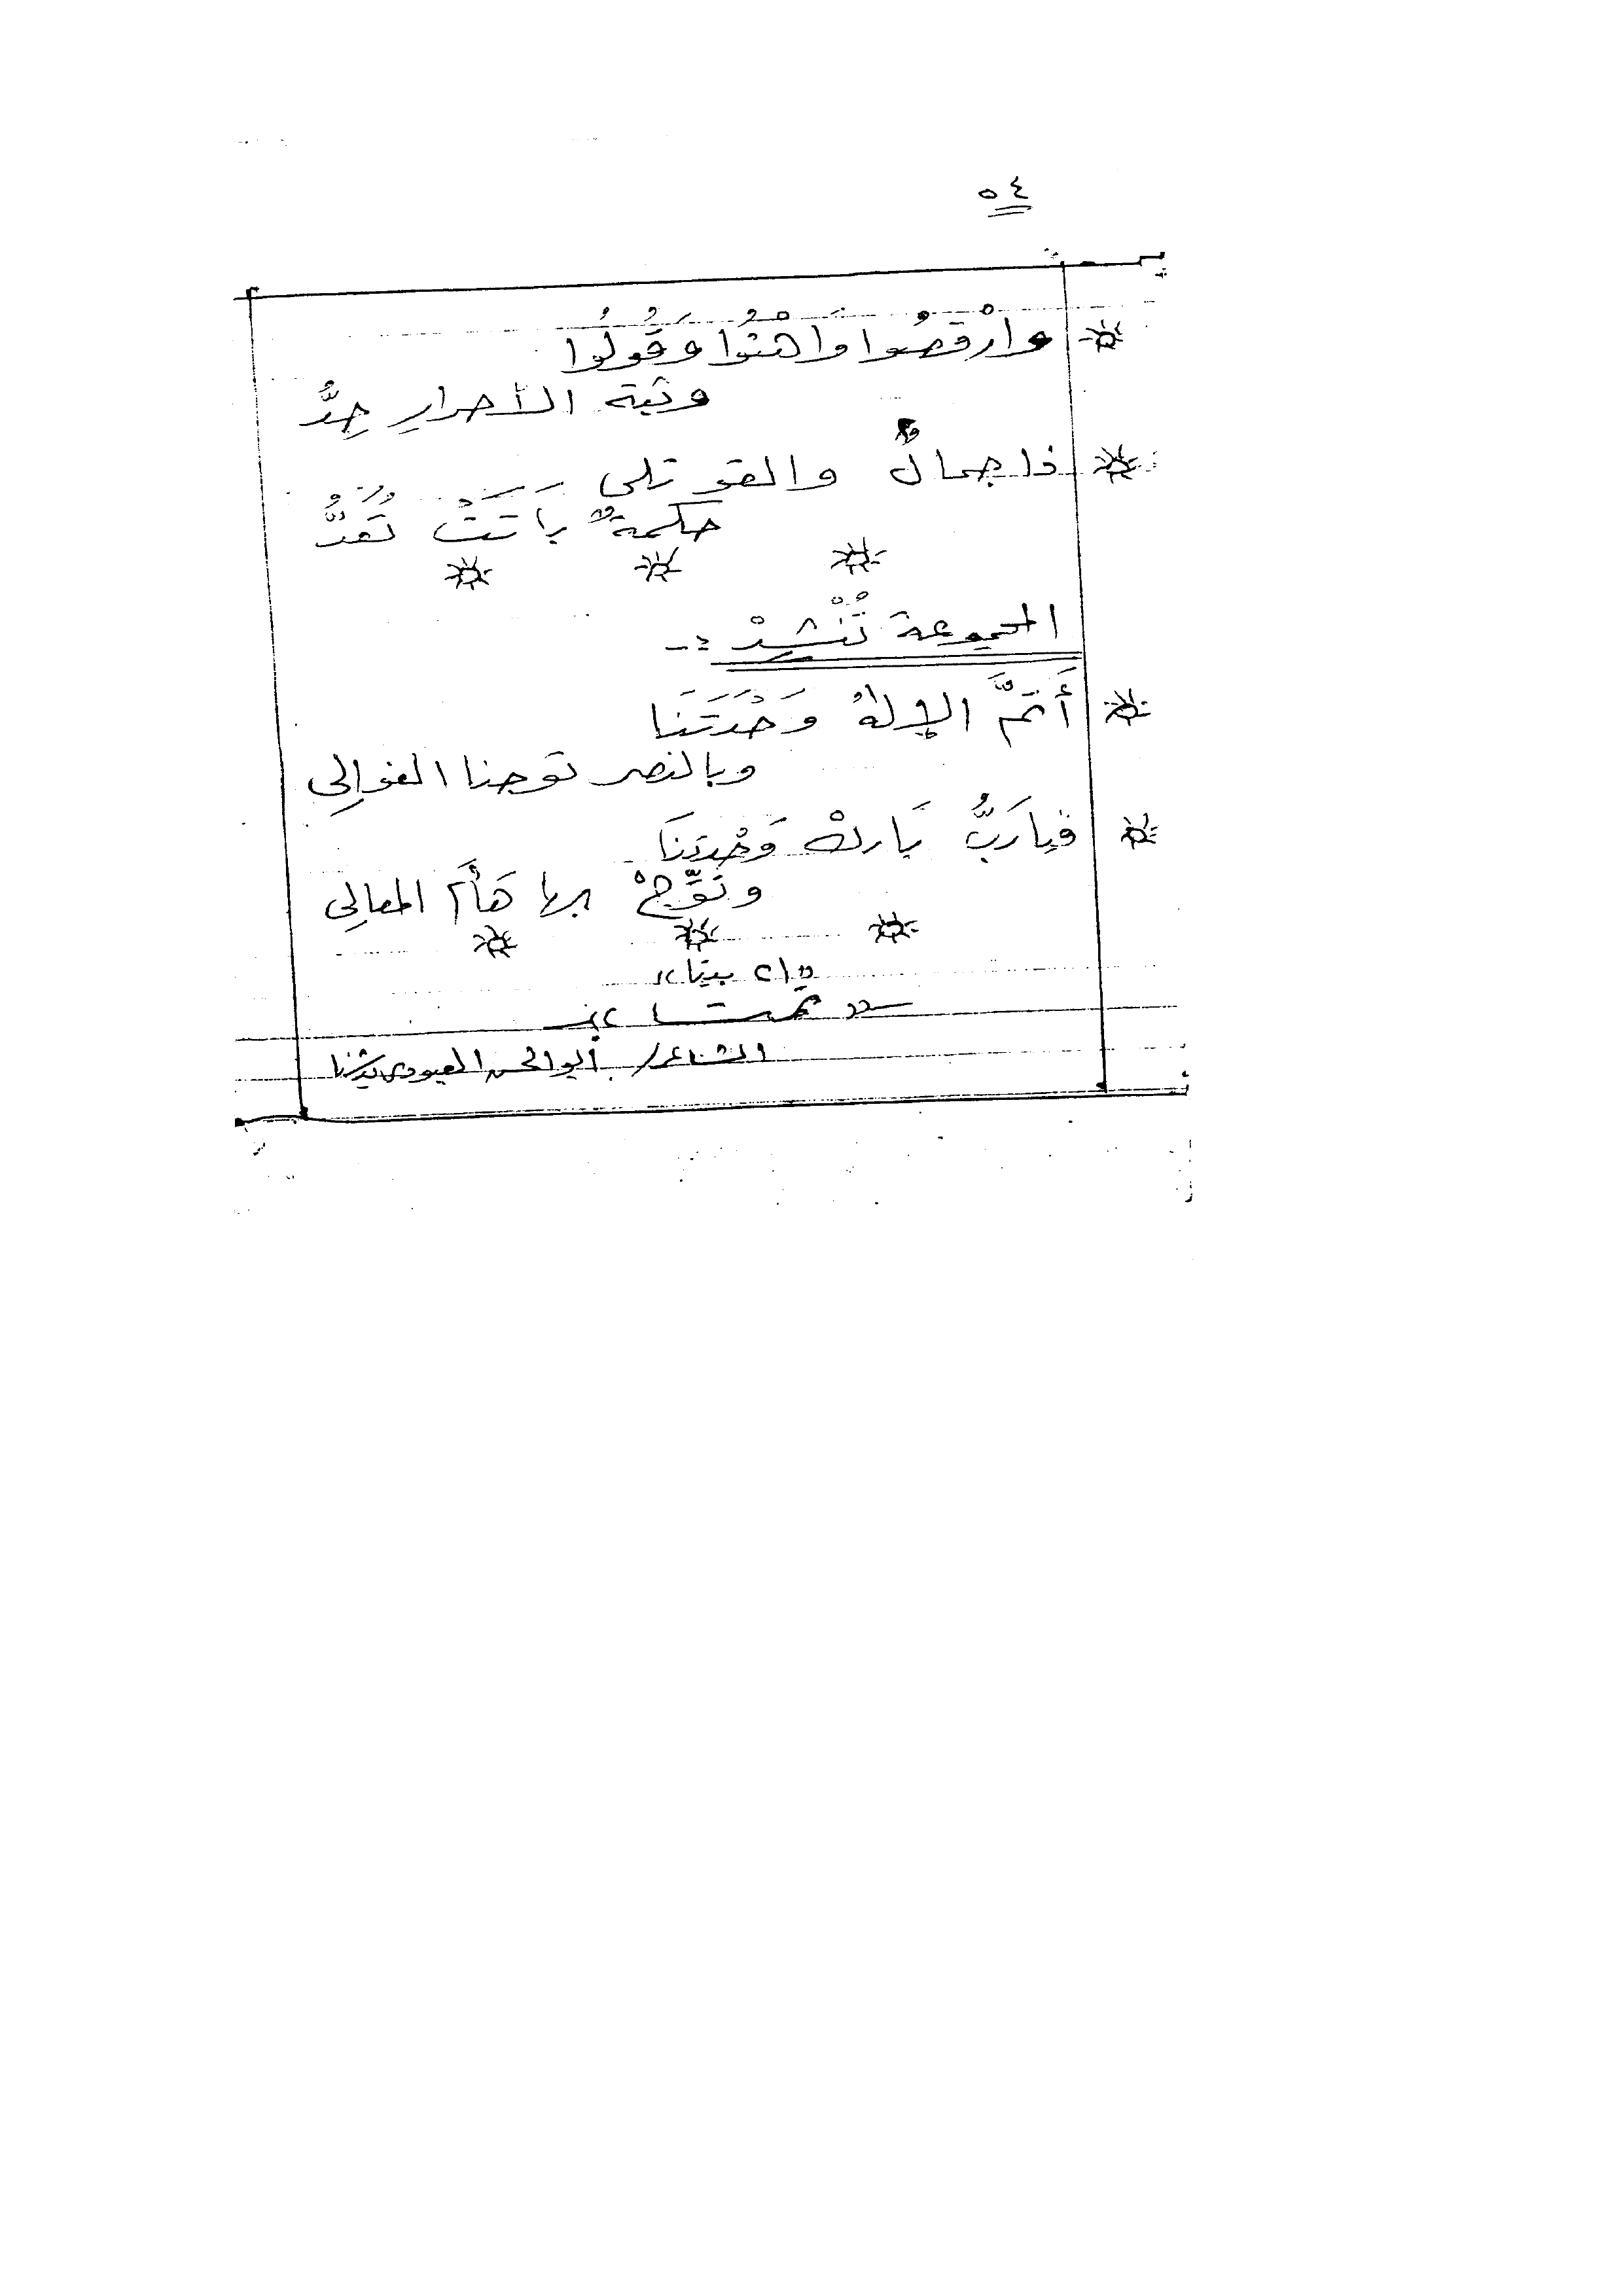 ٥٤
وارْقصُوا وَاهْنُوا وَقُولُوا
وثبة الأحرارِ جِدُّ
ذا جمالٌ والقوتلى
حكمةٌ بَاتَتْ تُعَدُّ
المجموعة تُنْشِدْ :-
أَتَمَّ الإلهُ وَحْدَتَنَا
وبالنصر توجنا الغوالِى
فيارَبُّ بَاركْ وَحْدتَنَا
وتَوِّجْ بها هَأم المعالِى
"١٢ بيتا"
تمت
الشاعر/ أبو الحسن العبودى